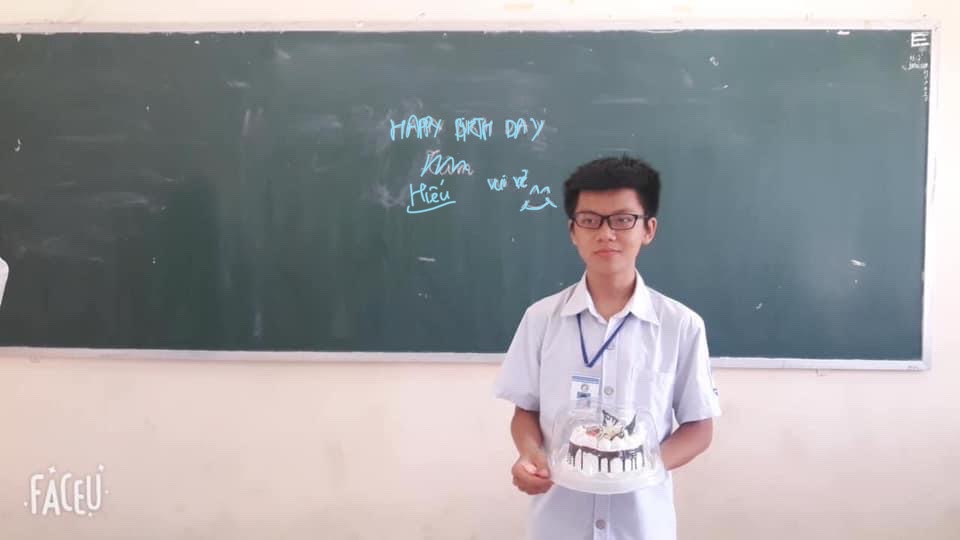 HAPPY BIRTH DAY
Hiếu vui vẻ
E
FACEU